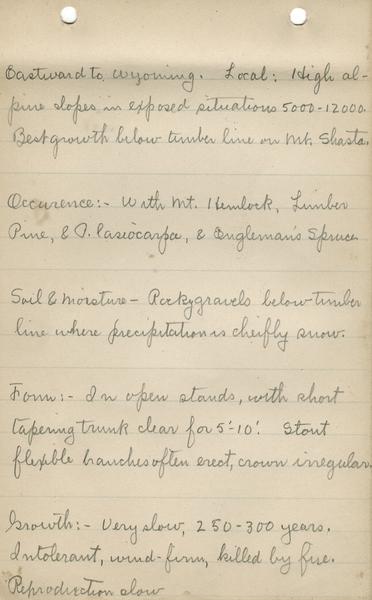 Eastward to Wyoming. Local: High al-
pine slopes in exposed situations 5000-12000.
Best growth below timber line on Mt. Shasta.
Occurence:- With Mt. Hemlock, Limber
Pine, & A. lasiocarpa, & Engleman's Spruce
Soil & Moisture - Rocky gravels below timber
line where precipitation is cheifly snow.
Form:- In open stands, with short
tapering trunk clear for 5'-10'. Stout
flexible branches often erect, crown irregular.
Growth:- Very slow, 250-300 years.
Intolerant, wind-firm, killed by fire.
Reproduction slow